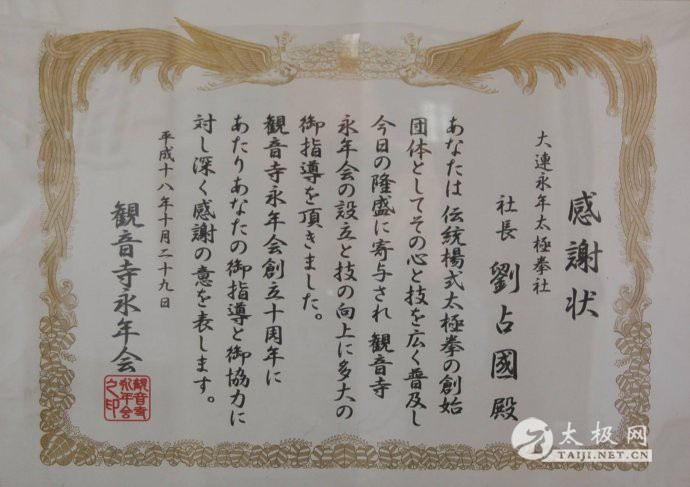 感謝状
大連永年太極拳社
社長 劉占國殿
あなたは 伝統楊式太極拳の創始
団体としてその心と技を広く普及し
今日の隆盛に寄与され 観音寺
永年会の設立と技の向上に多大の
御指導を頂きました。
観音寺永年会創立十周年に
あたりあなたの御指導と御協力に
対し深く感謝の意を表します。
平成十八年十月二十九日
観音寺永年会
観音寺
永年会
之印
太极网
TAIJI.NET.CN